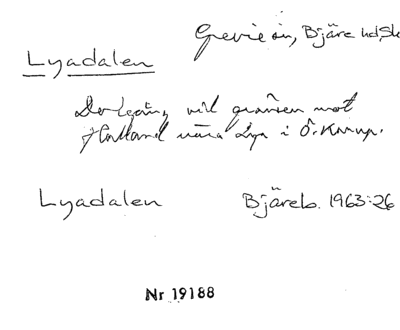 Grevie sn, Bjäre hd, Sk
Lyadalen
Dalgång vid gränsen mot
Halland nära Lya i Ö. Karup.
Lyadalen Bjäreb. 1963:26
Nr 19188